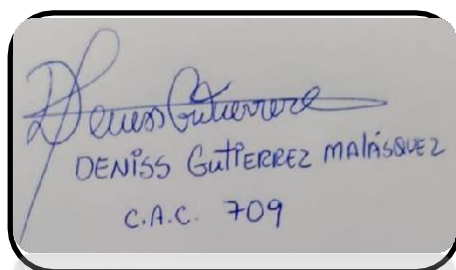 Deniss Gutierrez
DENiSS GutiERREZ MAlÁSQUEZ
C.A.C. 709